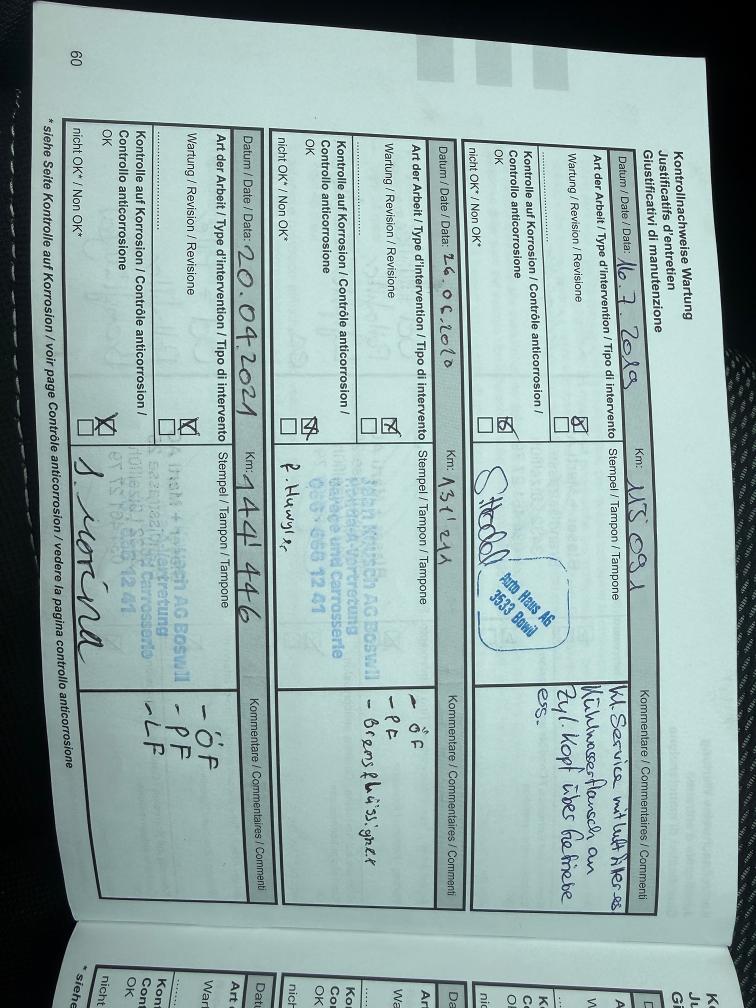 Kontrollnachweise Wartung
Justificatifs d'entretien
Giustificativi di manutenzione
Datum / Date / Data: 16.7.2019 Km: 115'091 Kommentare / Commentaires / Commenti
Art der Arbeit / Type d'intervention / Tipo di intervento Stempel / Tampon / Tampone
Wartung / Revision / Revisione
Kontrolle auf Korrosion / Contrôle anticorrosion /
Controllo anticorrosione
OK
nicht OK* / Non OK*
Auto Haus AG
3533 Bowil
Kl. Service mit Luftfilter es
Kühlwasserflansch an
Zyl. Kopf über Getriebe
ess.
Datum / Date / Data: 26.06.2020 Km: 131'211 Kommentare / Commentaires / Commenti
Art der Arbeit / Type d'intervention / Tipo di intervento Stempel / Tampon / Tampone
Wartung / Revision / Revisione
Kontrolle auf Korrosion / Contrôle anticorrosion /
Controllo anticorrosione
OK
nicht OK* / Non OK*
AG Boswil
Vertretung
Garage und Carrosserie
056 - 666 12 41
- ÖF
- PF
- Bremsflüssigkeit
Datum / Date / Data: 20.04.2021 Km: 144'446 Kommentare / Commentaires / Commenti
Art der Arbeit / Type d'intervention / Tipo di intervento Stempel / Tampon / Tampone
Wartung / Revision / Revisione
Kontrolle auf Korrosion / Contrôle anticorrosion /
Controllo anticorrosione
OK
nicht OK* / Non OK*
AG Boswil
Vertretung
Carrosserie
666 12 41
S. Morina
- ÖF
- PF
- LF
* siehe Seite Kontrolle auf Korrosion / voir page Contrôle anticorrosion / vedere la pagina controllo anticorrosione
60